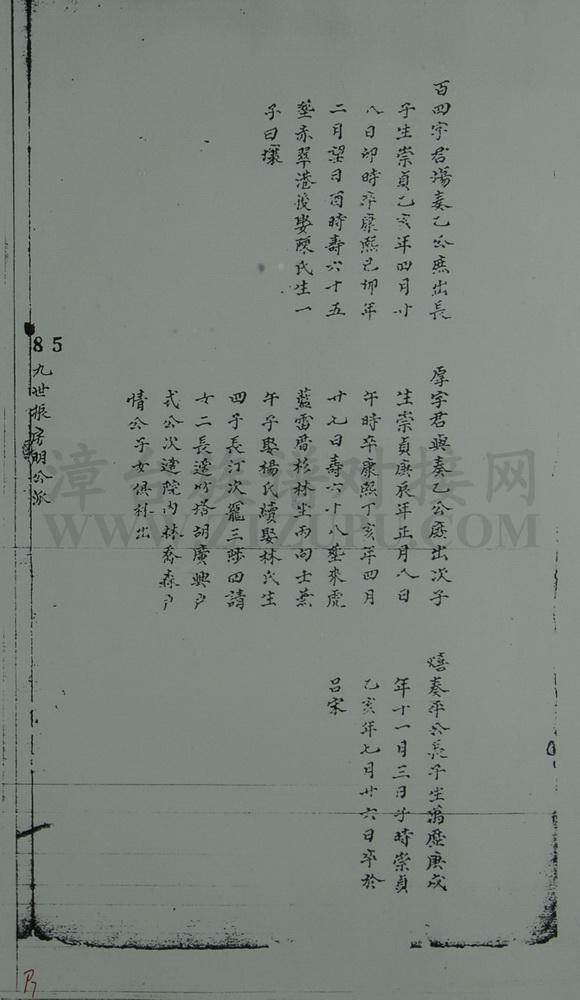 百四字君湯奏乙公庶出長
子生崇貞乙亥年四月廿
八日卯時卒康熙己卯年
二月望日酉時壽六十五
塟赤翠港後娶陳氏生一
子曰壤
厚字君興奏乙公庶出次子
生崇貞庚辰年正月八日
午時卒康熙丁亥年四月
廿七日壽六十八塟來虎
藍雷厝杉林坐丙向士兼
午子娶楊氏續娶林氏生
四子長汀次寵三陟四請
女二長邊竹塔胡廣興户
式公次造院內林喬森户
情公子女俱林出
熺奏平公長子生萬歷庚戌
年十一月三日子時崇貞
乙亥年七月廿六日卒於
呂宋
85
九世振房明公派
漳台族谱对接网
WWW.ZTZUPU.COM